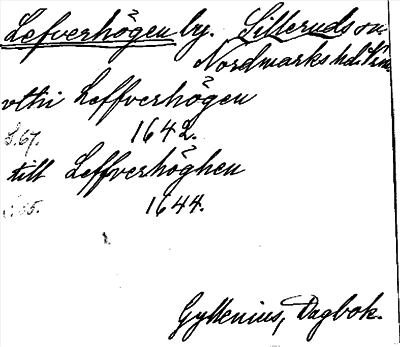 Lefverhögen by. Silleruds sn
Nordmarks hd. Vrml
vthi Leffverhögen
S. 67. 1642.
till Leffverhöghen
1644.
Gyllenius, Dagbok.